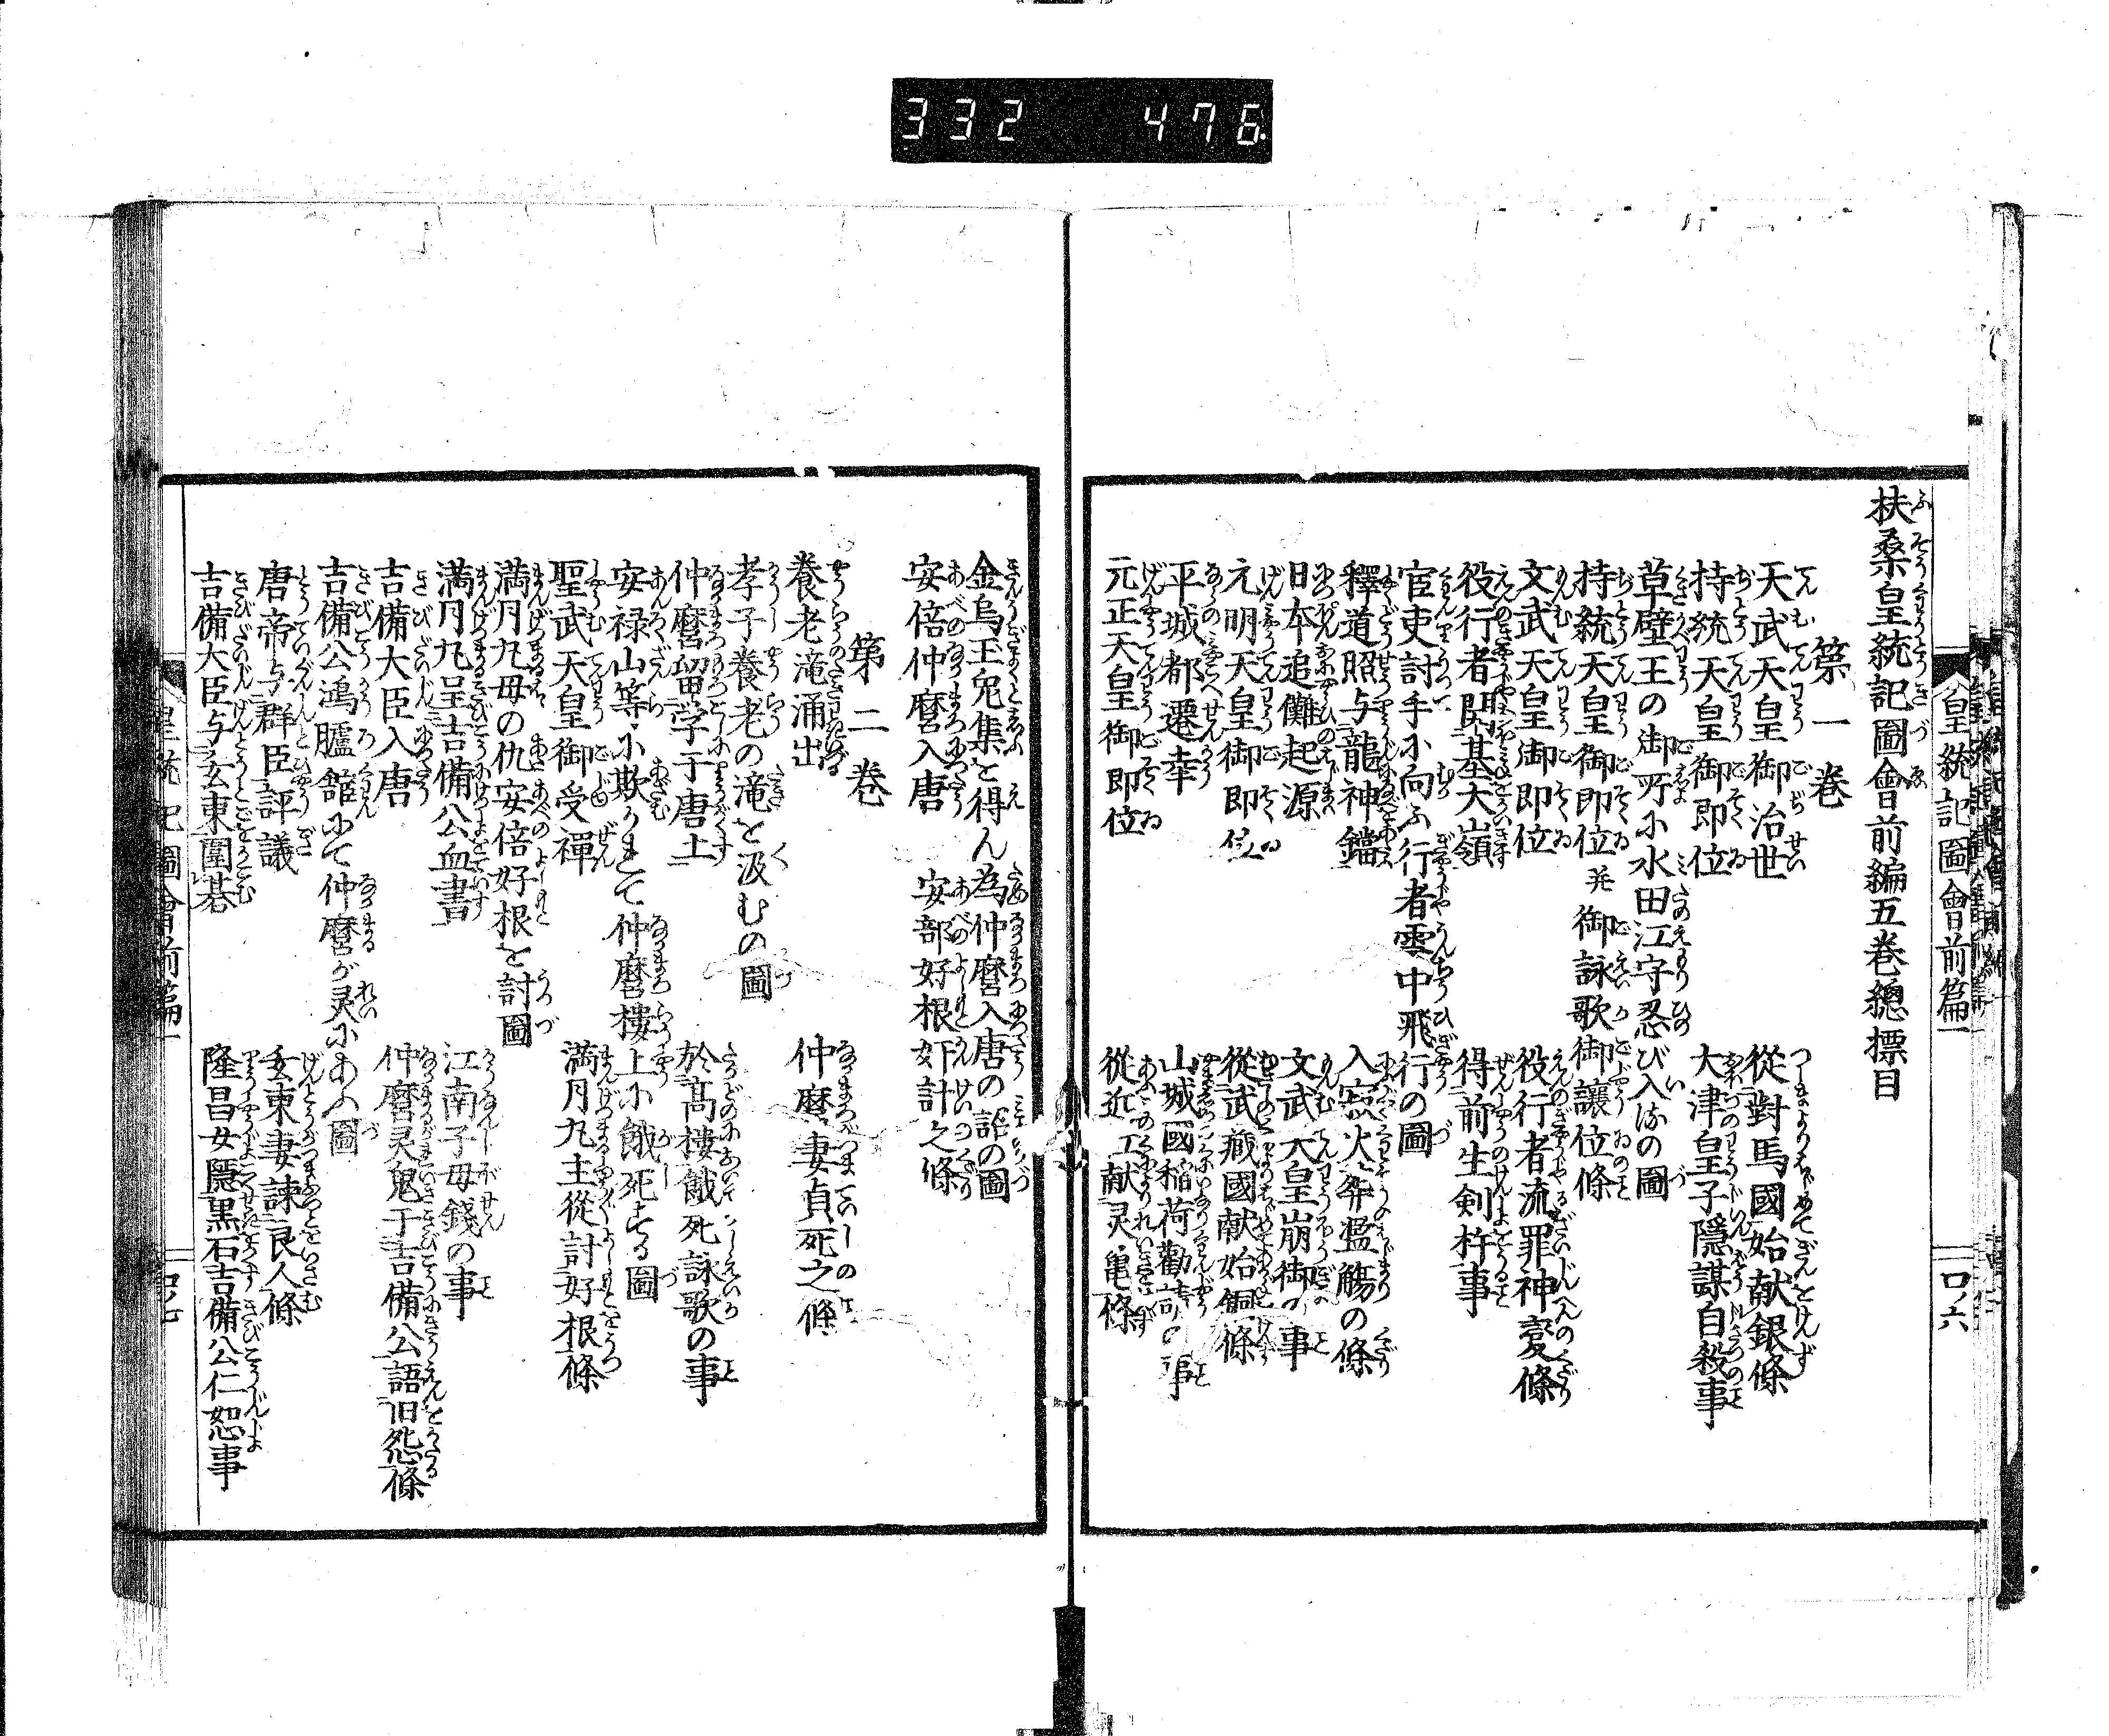 332 476
皇統記圖會前篇一
口ノ六
扶桑皇統記圖會前編五巻總標目
第一巻
天武天皇御治世 從對馬國始献銀條
持統天皇御即位 大津皇子隱謀自殺事
草壁王の御所小水田江守忍び入るの圖
持統天皇御即位并御詠歌御讓位條
文武天皇御即位 役行者流罪神変條
役行者開基大嶺 得前生剣杵事
官吏討手小向ふ行者雲中飛行の圖
釋道照与龍神鐺 火葬濫觴の條
日本追儺起源 文武天皇崩御の事
元明天皇御即位 從武藏國献始銅條
平城都遷幸 山城國稲荷勸請の事
元正天皇御即位 從近江献灵亀條
金烏玉兎集を得ん為仲麿入唐の詔の圖
安倍仲麿入唐 安部好根奸計之條
第二巻
養老滝涌出 仲麿妻貞死之條
孝子養老の滝を汲むの圖
仲麿留学于唐土 於髙樓餓死詠歌の事
安禄山等小欺かれて仲麿樓上小餓死する圖
聖武天皇御受禪 満月丸主從討好根條
満月丸母の仇安倍好根を討圖
満月丸呈吉備公血書 江南子母錢の事
吉備大臣入唐 仲麿灵鬼于吉備公語旧怨條
吉備公鴻臚舘にて仲麿が灵小あふ圖
唐帝与群臣評議 玄東妻諌良人條
吉備大臣与玄東圍碁 隆昌女隱黒石吉備公仁恕事
皇統記圖會前篇一
口ノ七